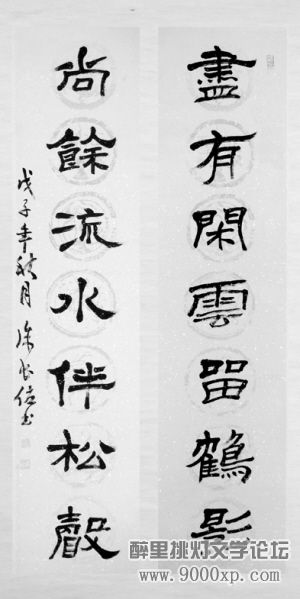 盡有閑雲留鶴影
尚餘流水伴松聲
戊子年秋月
醉里挑灯文学论坛
www.9000xp.com